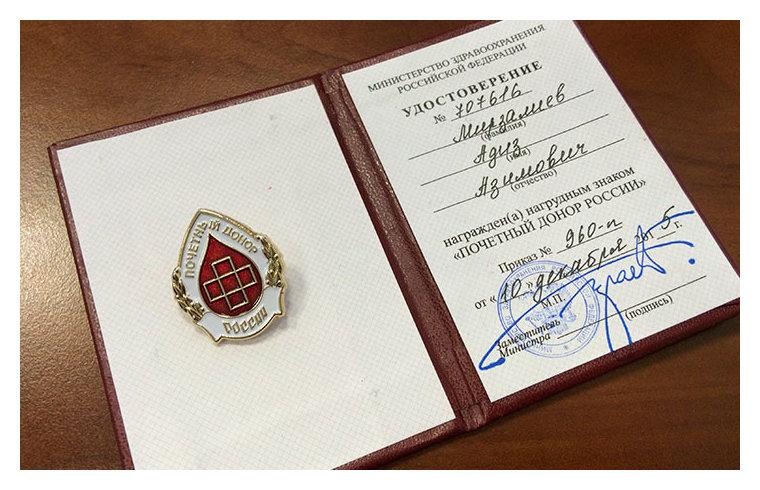 ПОЧЕТНЫЙ ДОНОР
РОССИИ
МИНИСТЕРСТВО ЗДРАВООХРАНЕНИЯ
РОССИЙСКОЙ ФЕДЕРАЦИИ
УДОСТОВЕРЕНИЕ
№ 707616
Мирзалиев
(фамилия)
Адиз
(имя)
Азимович
(отчество)
награжден(а) нагрудным знаком
«ПОЧЕТНЫЙ ДОНОР РОССИИ»
Приказ № 960-п
от «10» декабря 2015 г.
М.П.
Заместитель
Министра
(подпись)